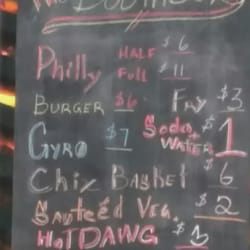 Philly HALF $6
Full $11
BURGER $6 FRY $3
GYRO $7 Soda, WATER $1
Chix Basket $6
Sauteed Veg. $2
HOT DAWG $3